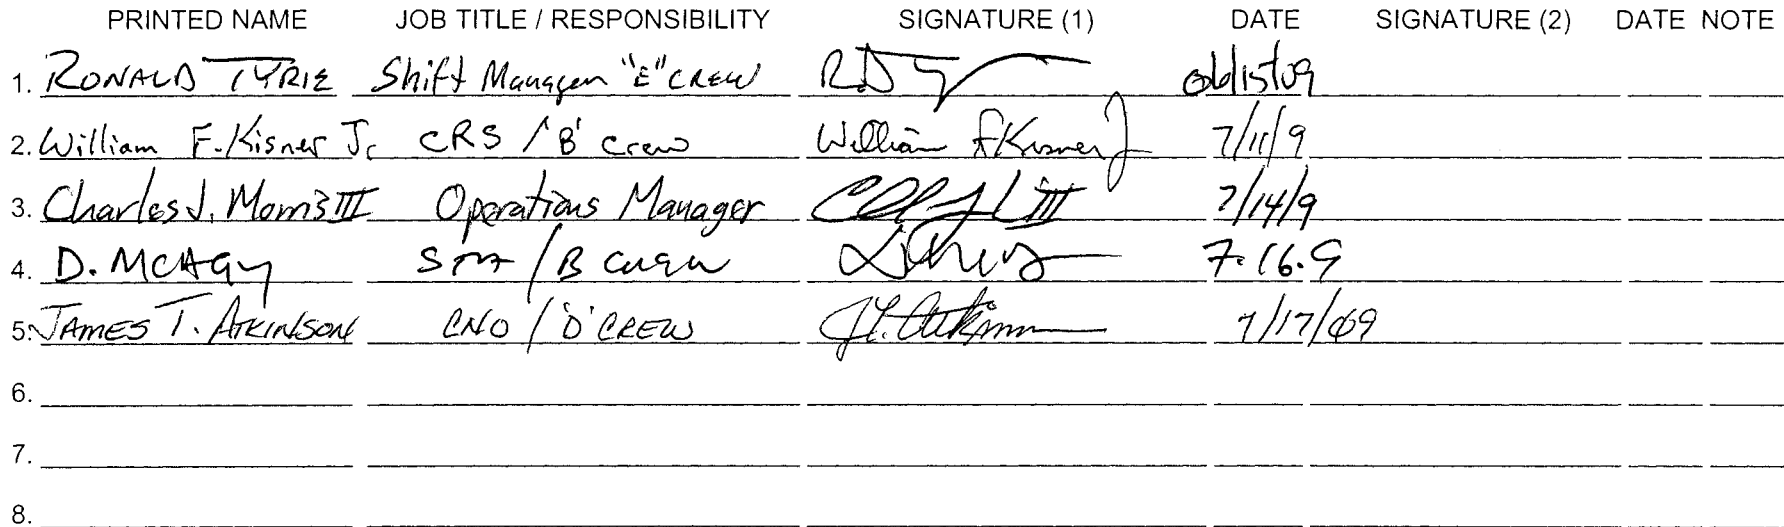 PRINTED NAME JOB TITLE / RESPONSIBILITY SIGNATURE (1) DATE SIGNATURE (2) DATE NOTE
1. RONALD TYRIE Shift Manager "E" CREW 06/15/09
2. William F. Kisner Jr CRS / 'B' Crew William F Kisner J 7/11/9
3. Charles J. Morris III Operations Manager III 7/14/9
4. D. McAGY / B CREW 7.16.9
5. JAMES T. ATKINSON CNO / 'D' CREW J.T. Atkinson 7/17/09
6.
7.
8.